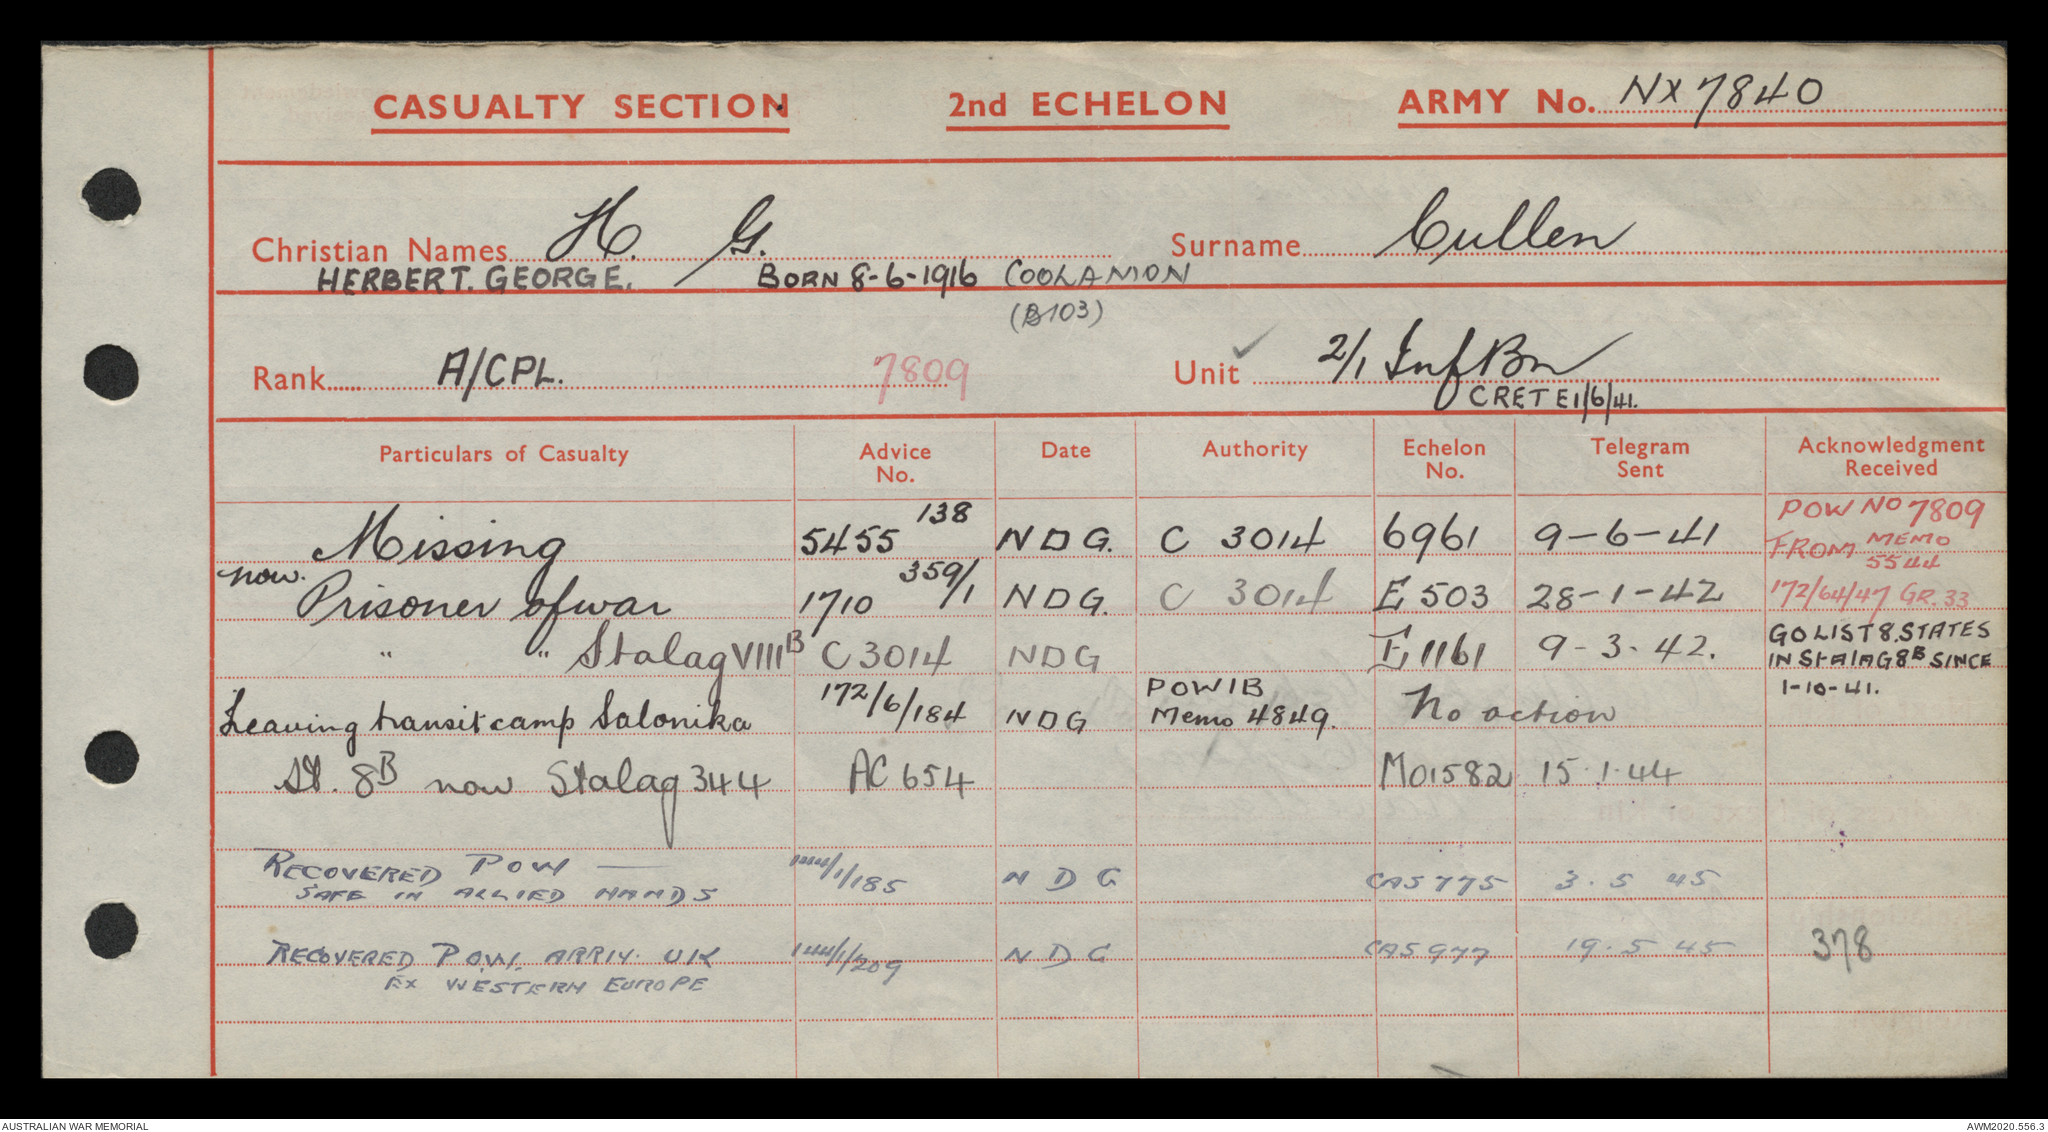 CASUALTY SECTION 2nd ECHELON ARMY No. NX 7840
Christian Names H. G. Surname Cullen
HERBERT. GEORGE. BORN 8-6-1916 COOLAMON
(B103)
Rank A/CPL. 7809 Unit 2/1 Inf Bn
CRETE 1/6/41.
Particulars of Casualty Advice No. Date Authority Echelon No. Telegram Sent Acknowledgment Received
Missing 5455 138 NDG. C 3014 6961 9-6-41 POW NO 7809
FROM MEMO 5544
now. Prisoner of war 1710 359/1 NDG. C 3014 E 503 28-1-42 172/64/47 GR.33
" " Stalag VIII B C 3014 NDG E 1161 9-3-42. GO LIST 8. STATES
IN StAlAG 8B SINCE
1-10-41.
Leaving transit camp Salonika 172/6/184 NDG POWIB Memo 4849. No action
St. 8B now Stalag 344 AC 654 MO1582 15.1.44
RECOVERED POW — 144/1/185 NDG CAS 775 3.5 45
SAFE IN ALLIED HANDS
RECOVERED P.O.W. ARRIV. UK 144/1/209 NDG CAS 977 19.5 45 378
EX WESTERN EUROPE
AUSTRALIAN WAR MEMORIAL AWM2020.556.3